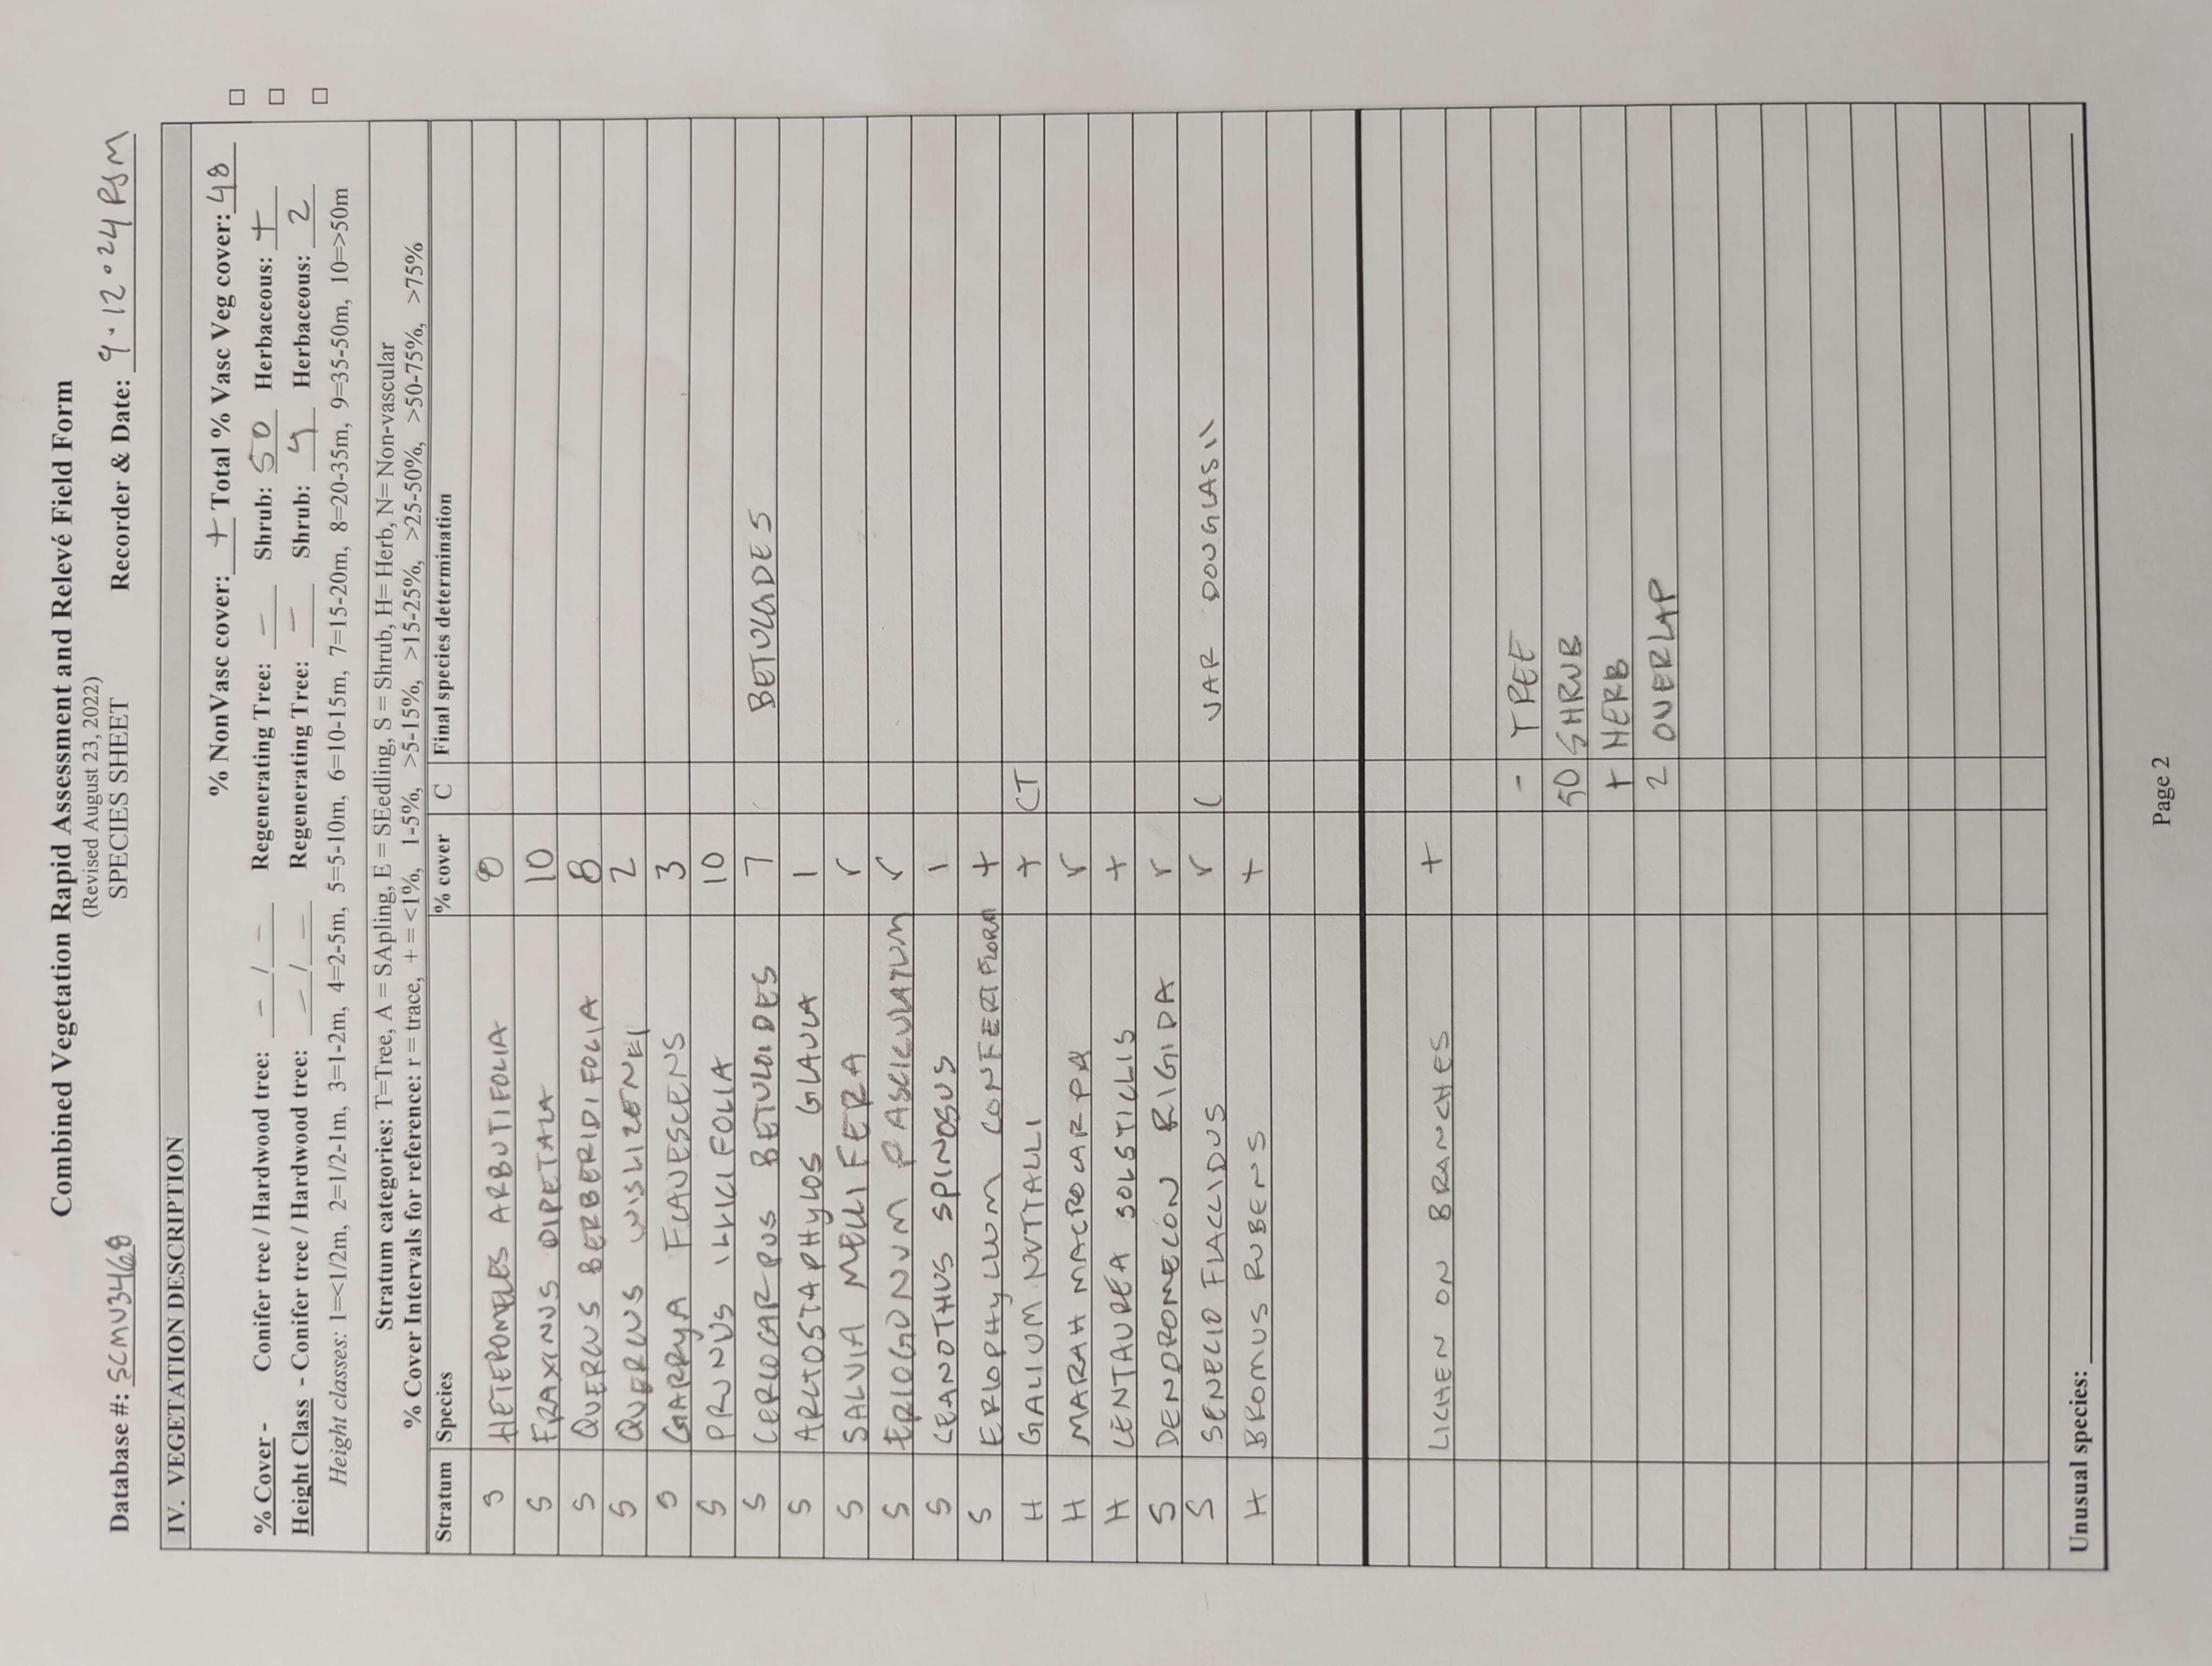 Combined Vegetation Rapid Assessment and Relevé Field Form
(Revised August 23, 2022)
SPECIES SHEET
Database #: SCMV3468 Recorder & Date: 9·12·24 PSM
IV. VEGETATION DESCRIPTION
% NonVasc cover: + Total % Vasc Veg cover: 48 □
% Cover - Conifer tree / Hardwood tree: - / - Regenerating Tree: - Shrub: 50 Herbaceous: + □
Height Class - Conifer tree / Hardwood tree: - / - Regenerating Tree: - Shrub: 4 Herbaceous: 2 □
Height classes: 1=<1/2m, 2=1/2-1m, 3=1-2m, 4=2-5m, 5=5-10m, 6=10-15m, 7=15-20m, 8=20-35m, 9=35-50m, 10=>50m
Stratum categories: T=Tree, A = SApling, E = SEedling, S = Shrub, H= Herb, N= Non-vascular
% Cover Intervals for reference: r = trace, + = <1%, 1-5%, >5-15%, >15-25%, >25-50%, >50-75%, >75%
Stratum Species % cover C Final species determination
S HETEROMELES ARBUTIFOLIA 8
S FRAXINUS DIPETALA 10
S QUERCUS BERBERIDIFOLIA 8
S QUERCUS WISLIZENEI 2
S GARRYA FLAVESCENS 3
S PRUNUS ILLICIFOLIA 10
S CERCOCARPUS BETULOIDES 7 BETULOIDES
S ARCTOSTAPHYLOS GLAUCA 1
S SALVIA MELLIFERA r
S ERIOGONUM FASCICULATUM r
S CEANOTHUS SPINOSUS 1
S ERIOPHYLLUM CONFERTIFLORA +
H GALIUM NUTTALLI + CT
H MARAH MACROCARPA r
H CENTAUREA SOLSTICLIS +
S DENDROMECON RIGIDA r
S SENECIO FLACCIDUS r C VAR DOUGLASII
H BROMUS RUBENS +
LICHEN ON BRANCHES +
- TREE
50 SHRUB
+ HERB
2 OVERLAP
Unusual species:
Page 2